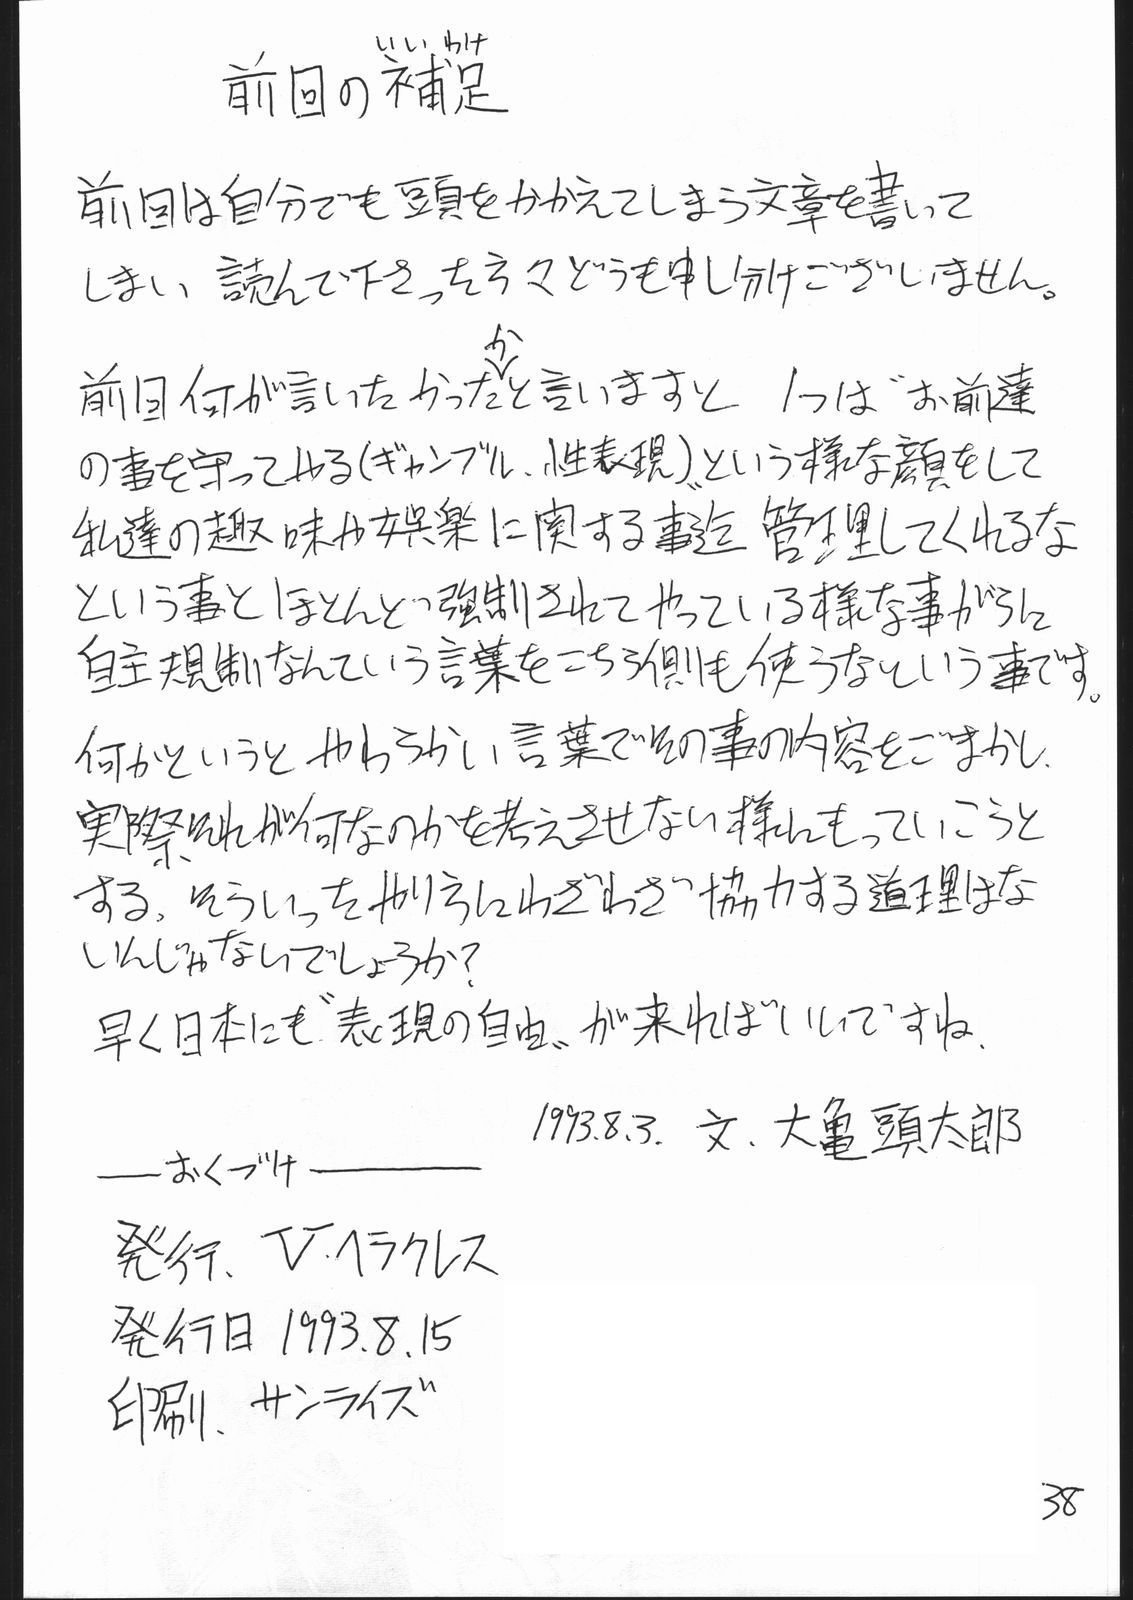 いいわけ
前回の補足
前回は自分でも頭をかかえてしまう文章を書いて
しまい、読んで下さった方々どうも申し分けございません。
前回何が言いたかったかと言いますと 1つは〝お前達
の事を守ってやる(ギャンブル、性表現)〟という様な顔をして
私達の趣味や娯楽に関する事迄管理してくれるな
という事とほとんど強制されてやっている様な事がらに
自主規制なんていう言葉をこちら側も使うなという事です。
何かというとやわらかい言葉でその事の内容をごまかし、
実際それが何なのかを考えさせない様にもっていこうと
する、そういったやり方にわざわざ協力する道理はな
いんじゃないでしょうか?
早く日本にも〝表現の自由〟が来ればいいですね、
1993.8.3. 文、大亀頭太郎
おくづけ
発行、V・ヘラクレス
発行日 1993.8.15
印刷、サンライズ
38